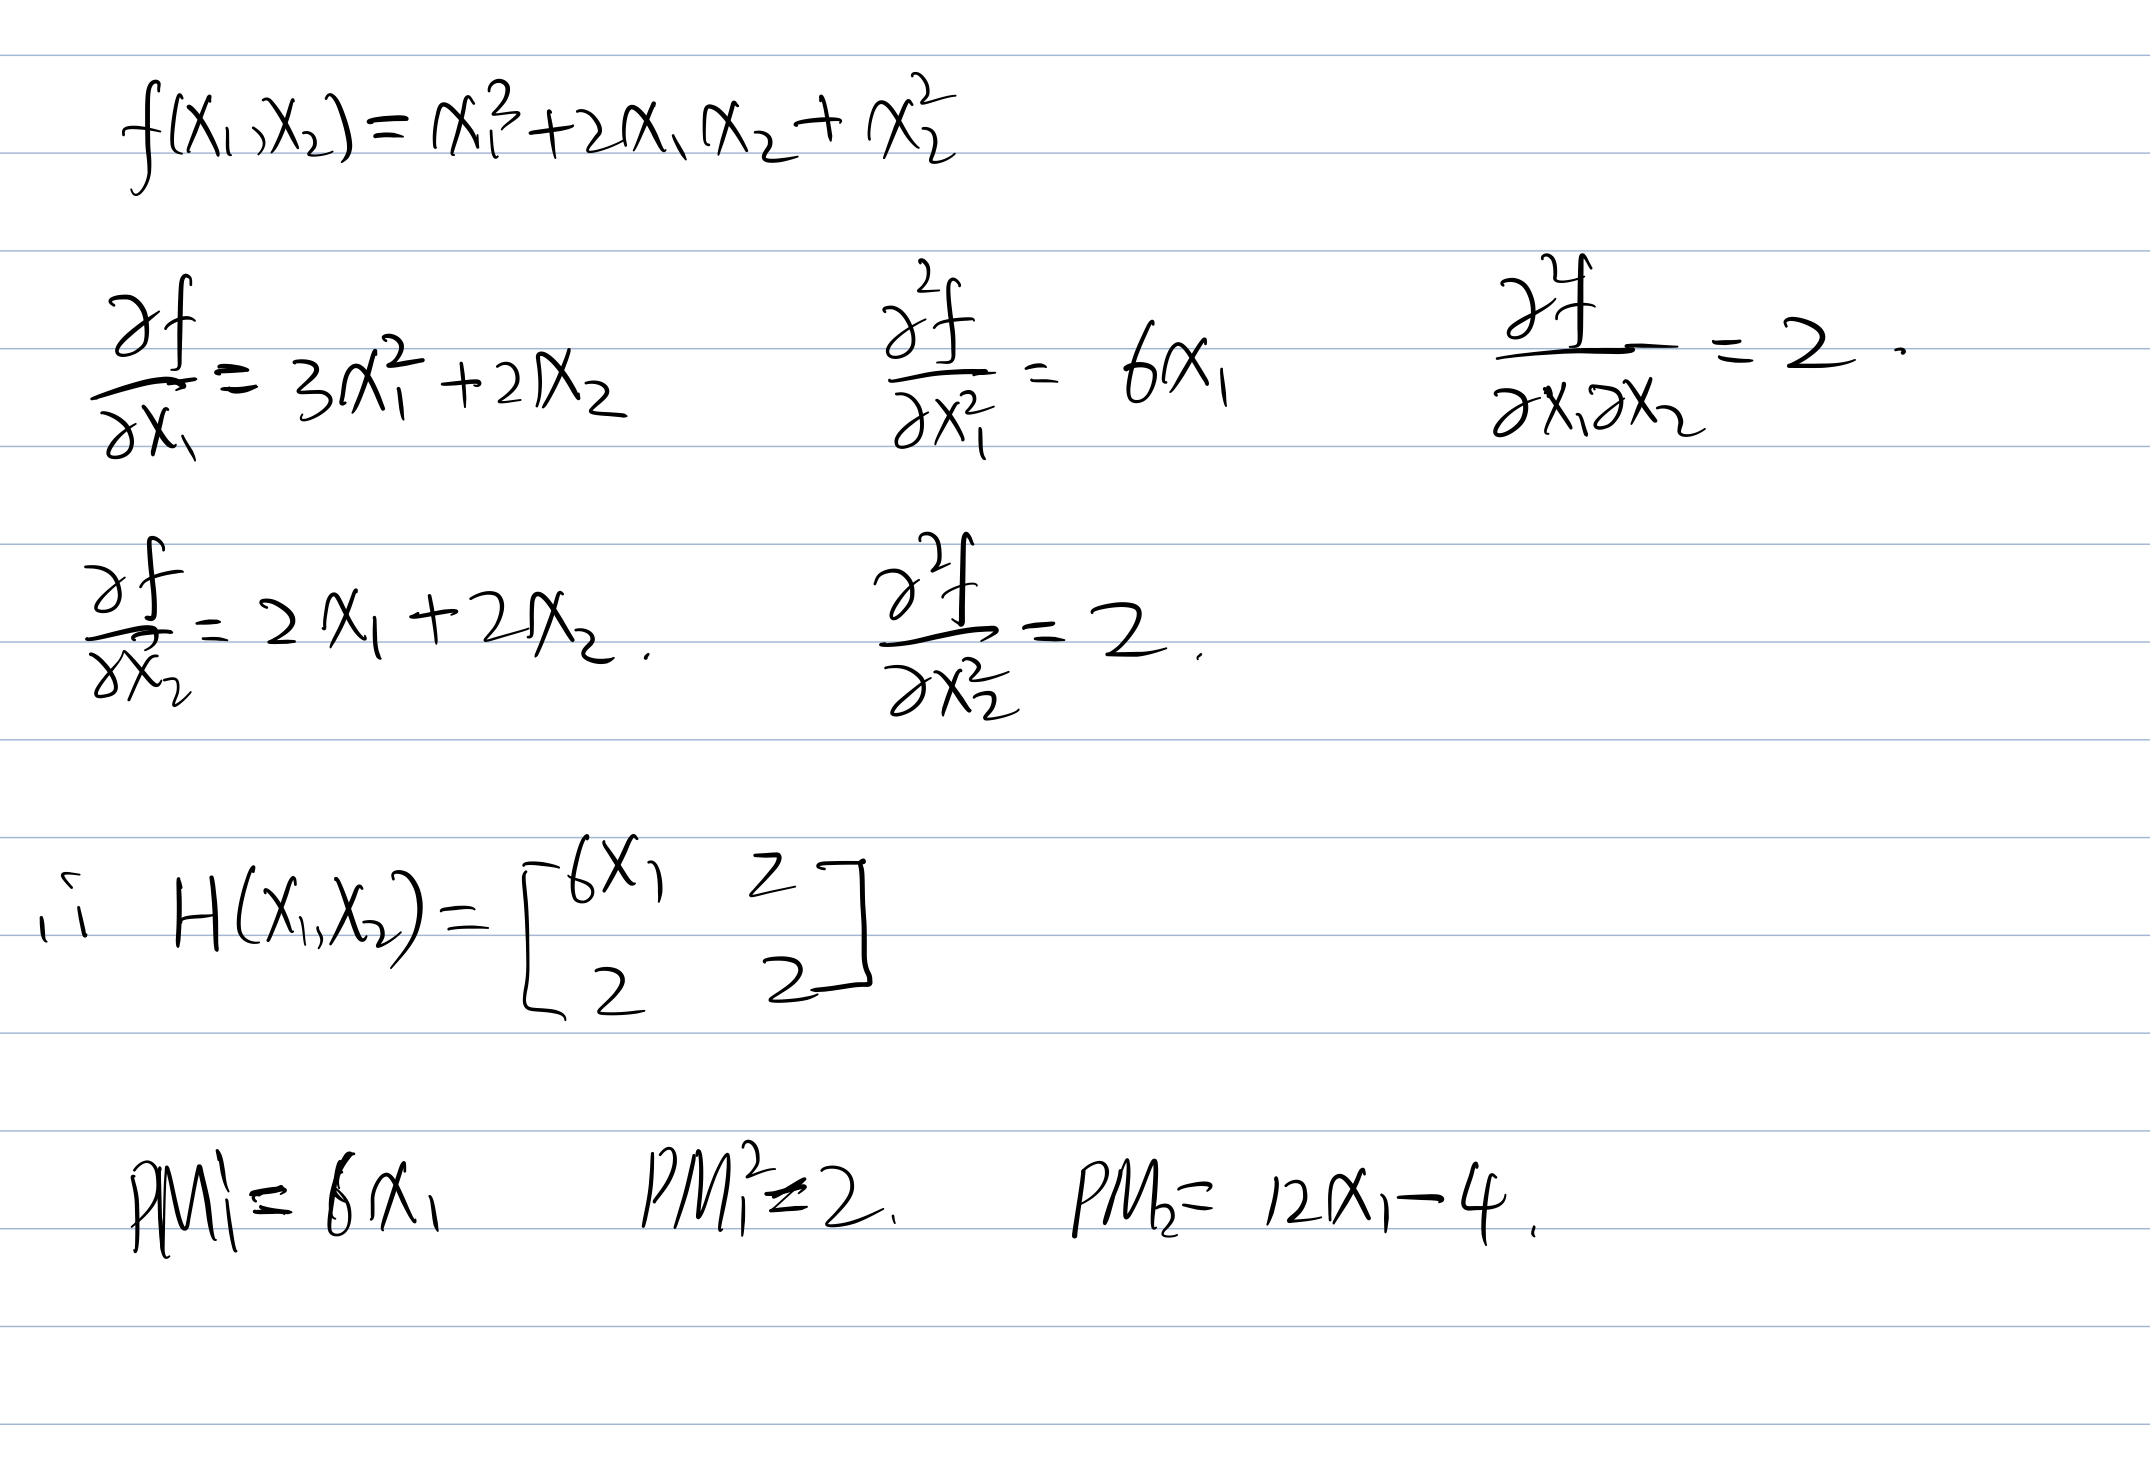 f(x₁,x₂) = x₁³ + 2x₁x₂ + x₂²
∂f/∂x₁ = 3x₁² + 2x₂    ∂²f/∂x₁² = 6x₁    ∂²f/∂x₁∂x₂ = 2.
∂f/∂x₂ = 2x₁ + 2x₂.    ∂²f/∂x₂² = 2.
∴ H(x₁,x₂) = [6x₁ 2
2 2]
PM₁¹ = 6x₁    PM₁² = 2.    PM₂ = 12x₁ − 4.